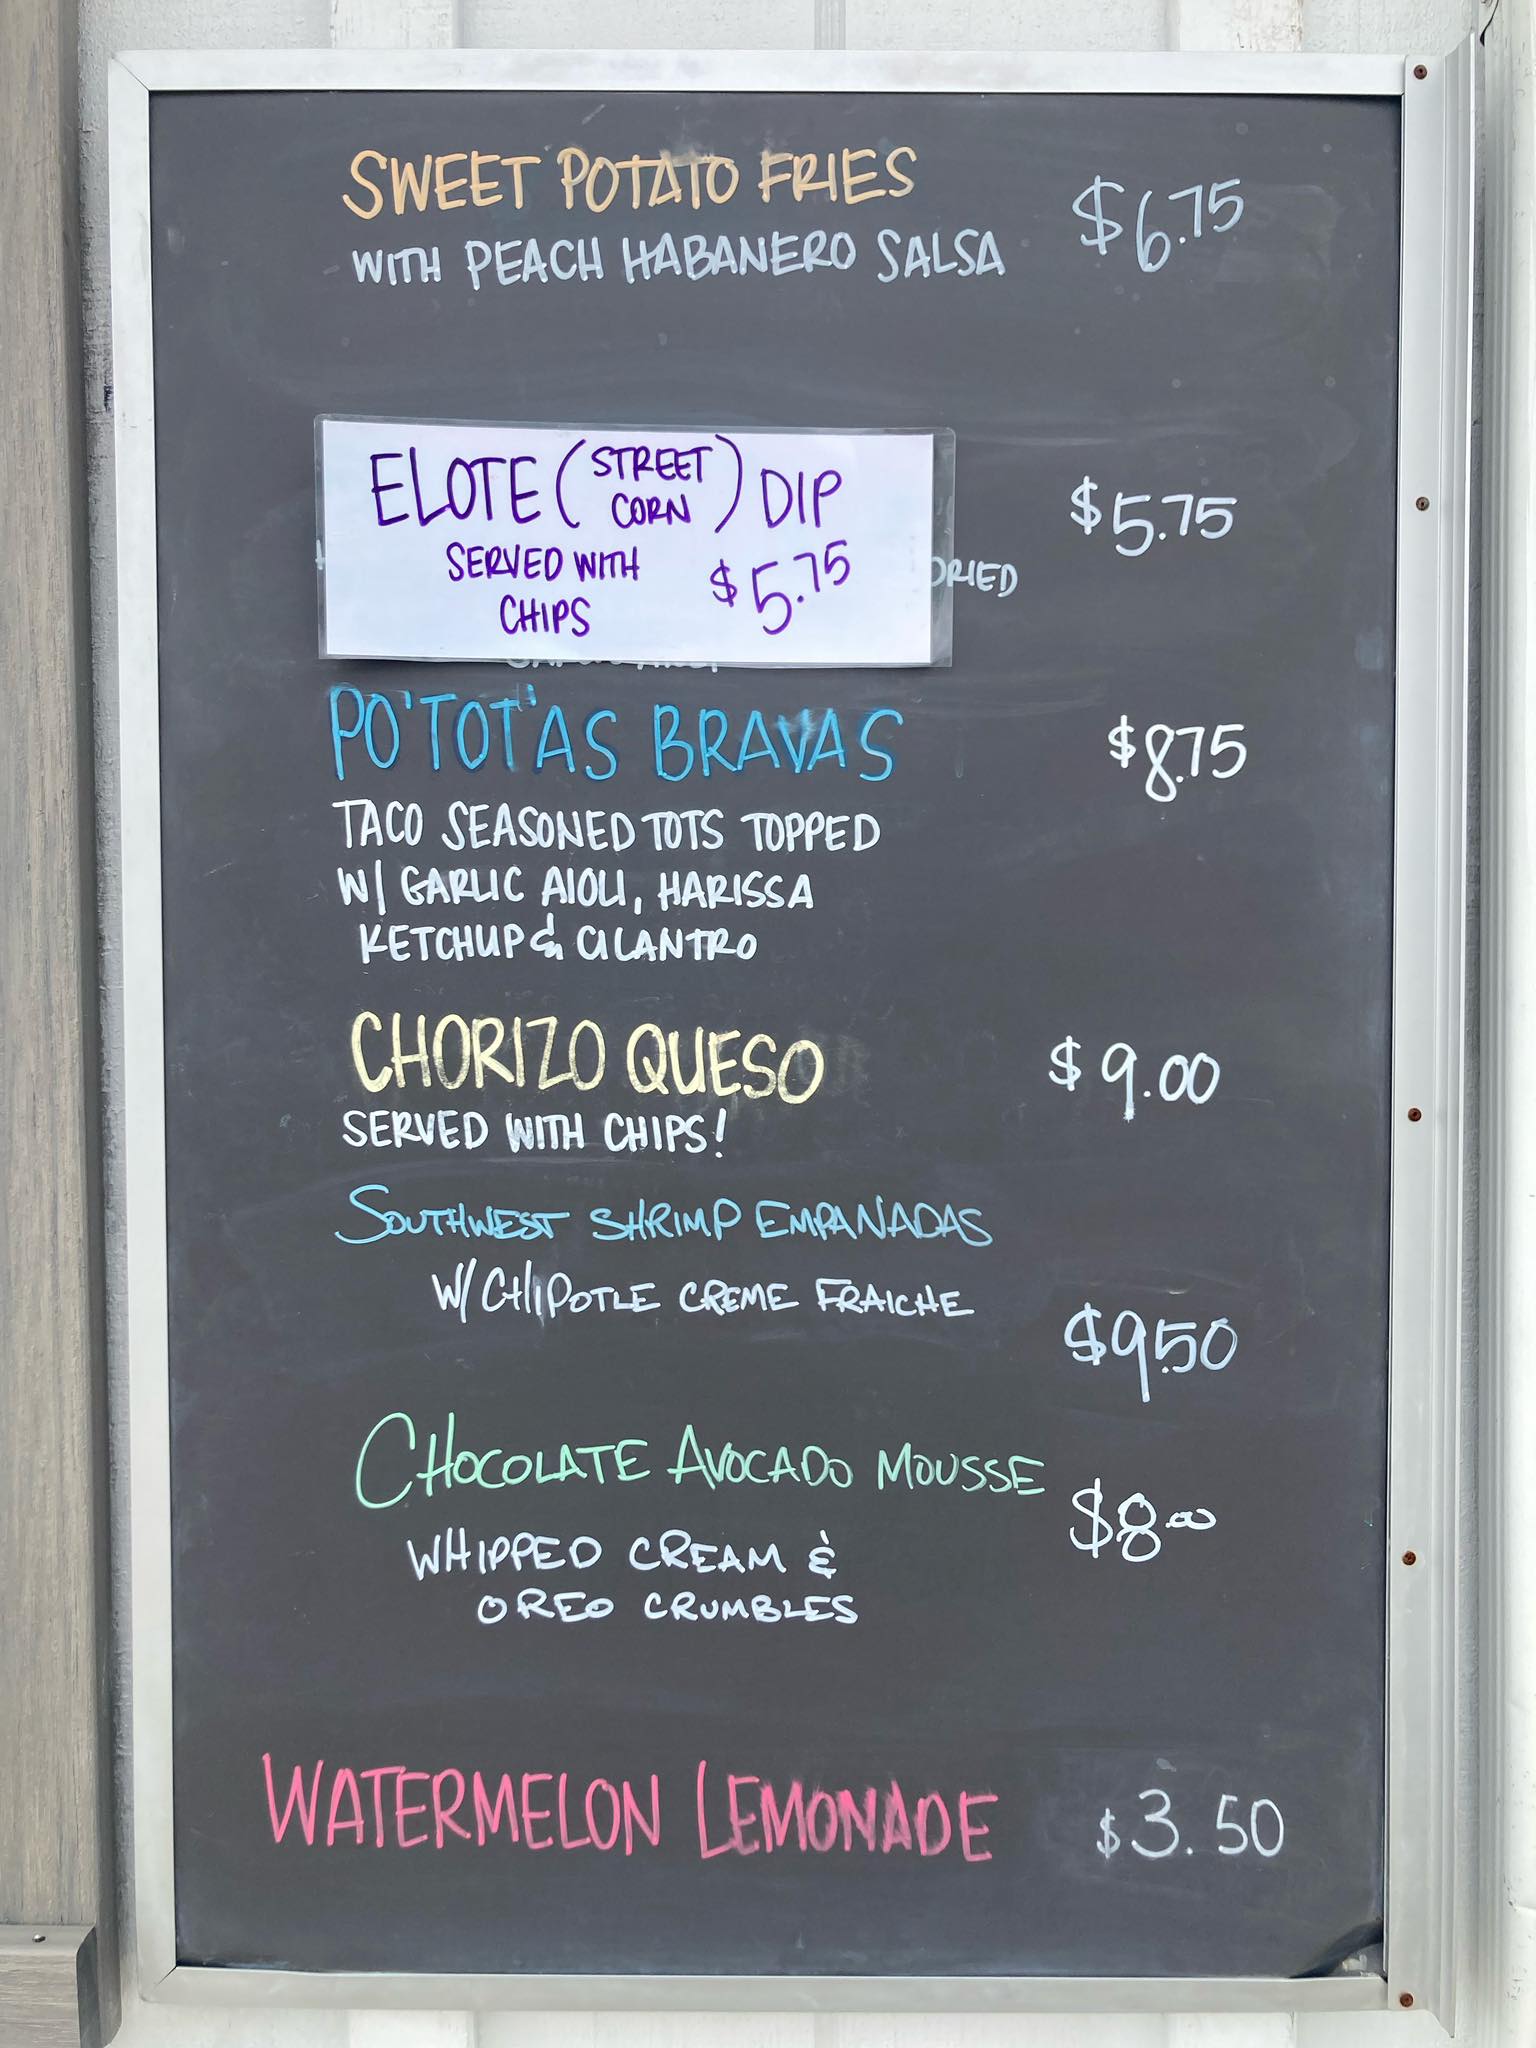 SWEET POTATO FRIES $6.75
WITH PEACH HABANERO SALSA
ELOTE (STREET CORN) DIP $5.75
SERVED WITH CHIPS $5.75
PO'TOT'AS BRAVAS $8.75
TACO SEASONED TOTS TOPPED
W/ GARLIC AIOLI, HARISSA
KETCHUP & CILANTRO
CHORIZO QUESO $9.00
SERVED WITH CHIPS!
SOUTHWEST SHRIMP EMPANADAS
W/ CHIPOTLE CREME FRAICHE $9.50
CHOCOLATE AVOCADO MOUSSE $8.00
WHIPPED CREAM &
OREO CRUMBLES
WATERMELON LEMONADE $3.50